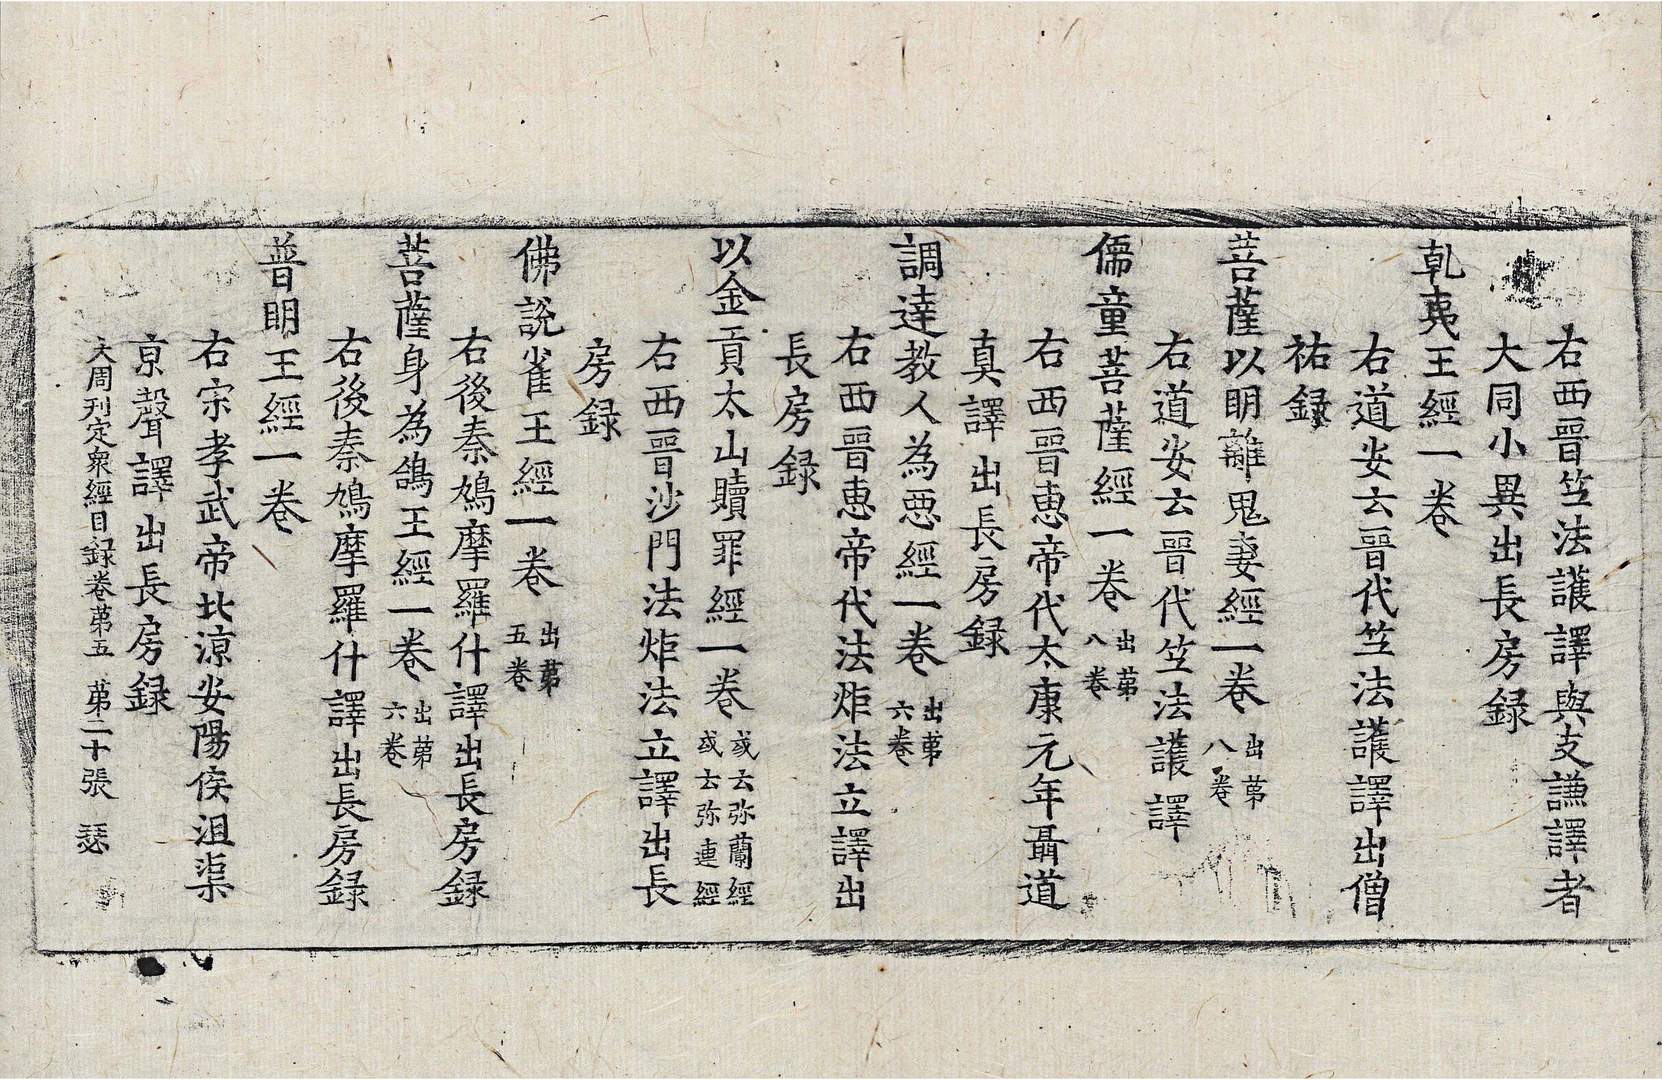 右西晉笁法護譯與支謙譯者
大同小異出長房録
乹夷王經一卷
右道安云晉代笁法護譯出僧
祐録
菩薩以明離鬼妻經一卷 出苐八卷
右道安云晉代笁法護譯
儒童菩薩經一卷 出苐八卷
右西晉恵帝代太康元年聶道
真譯出長房録
調達教人為惡經一卷 出苐六卷
右西晉恵帝代法炬法立譯出
長房録
以金貢太山贖罪經一卷 或云弥蘭經或云弥連經
右西晉沙門法炬法立譯出長
房録
佛說雀王經一卷 出苐五卷
右後秦鳩摩羅什譯出長房録
菩薩身為鴿王經一卷 出苐六卷
右後秦鳩摩羅什譯出長房録
普明王經一卷
右宗孝武帝北涼安陽侯沮渠
京聲譯出長房録
大周刋定衆經目録卷苐五 苐二十張 瑟